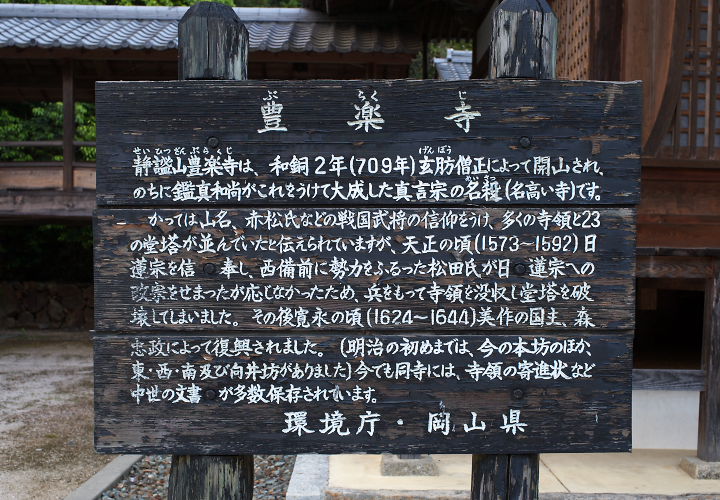 ぶ らく じ
豊楽寺
せい ひつ ざん ぶ らく じ げん ぼう
静謐山豊楽寺は、和銅2年(709年)玄肪僧正によって開山され、
のちに鑑真和尚がこれをうけて大成した真言宗の名殺(名高い寺)です。
かつては山名、赤松氏などの戦国武将の信仰をうけ、多くの寺領と23
の堂塔が並んでいたと伝えられていますが、天正の頃(1573〜1592)日
蓮宗を信 奉し、西備前に勢力をふるった松田氏が日 蓮宗への
改宗をせまったが応じなかったため、兵をもって寺領を没収し堂塔を破
壊してしまいました。その後寛永の頃(1624〜1644)美作の国主、森
忠政によって復興されました。(明治の初めまでは、今の本坊のほか、
東・西・南及び向井坊がありました)今でも同寺には、寺領の寄進状など
中世の文書 が多数保存されています。
環境庁・岡山県